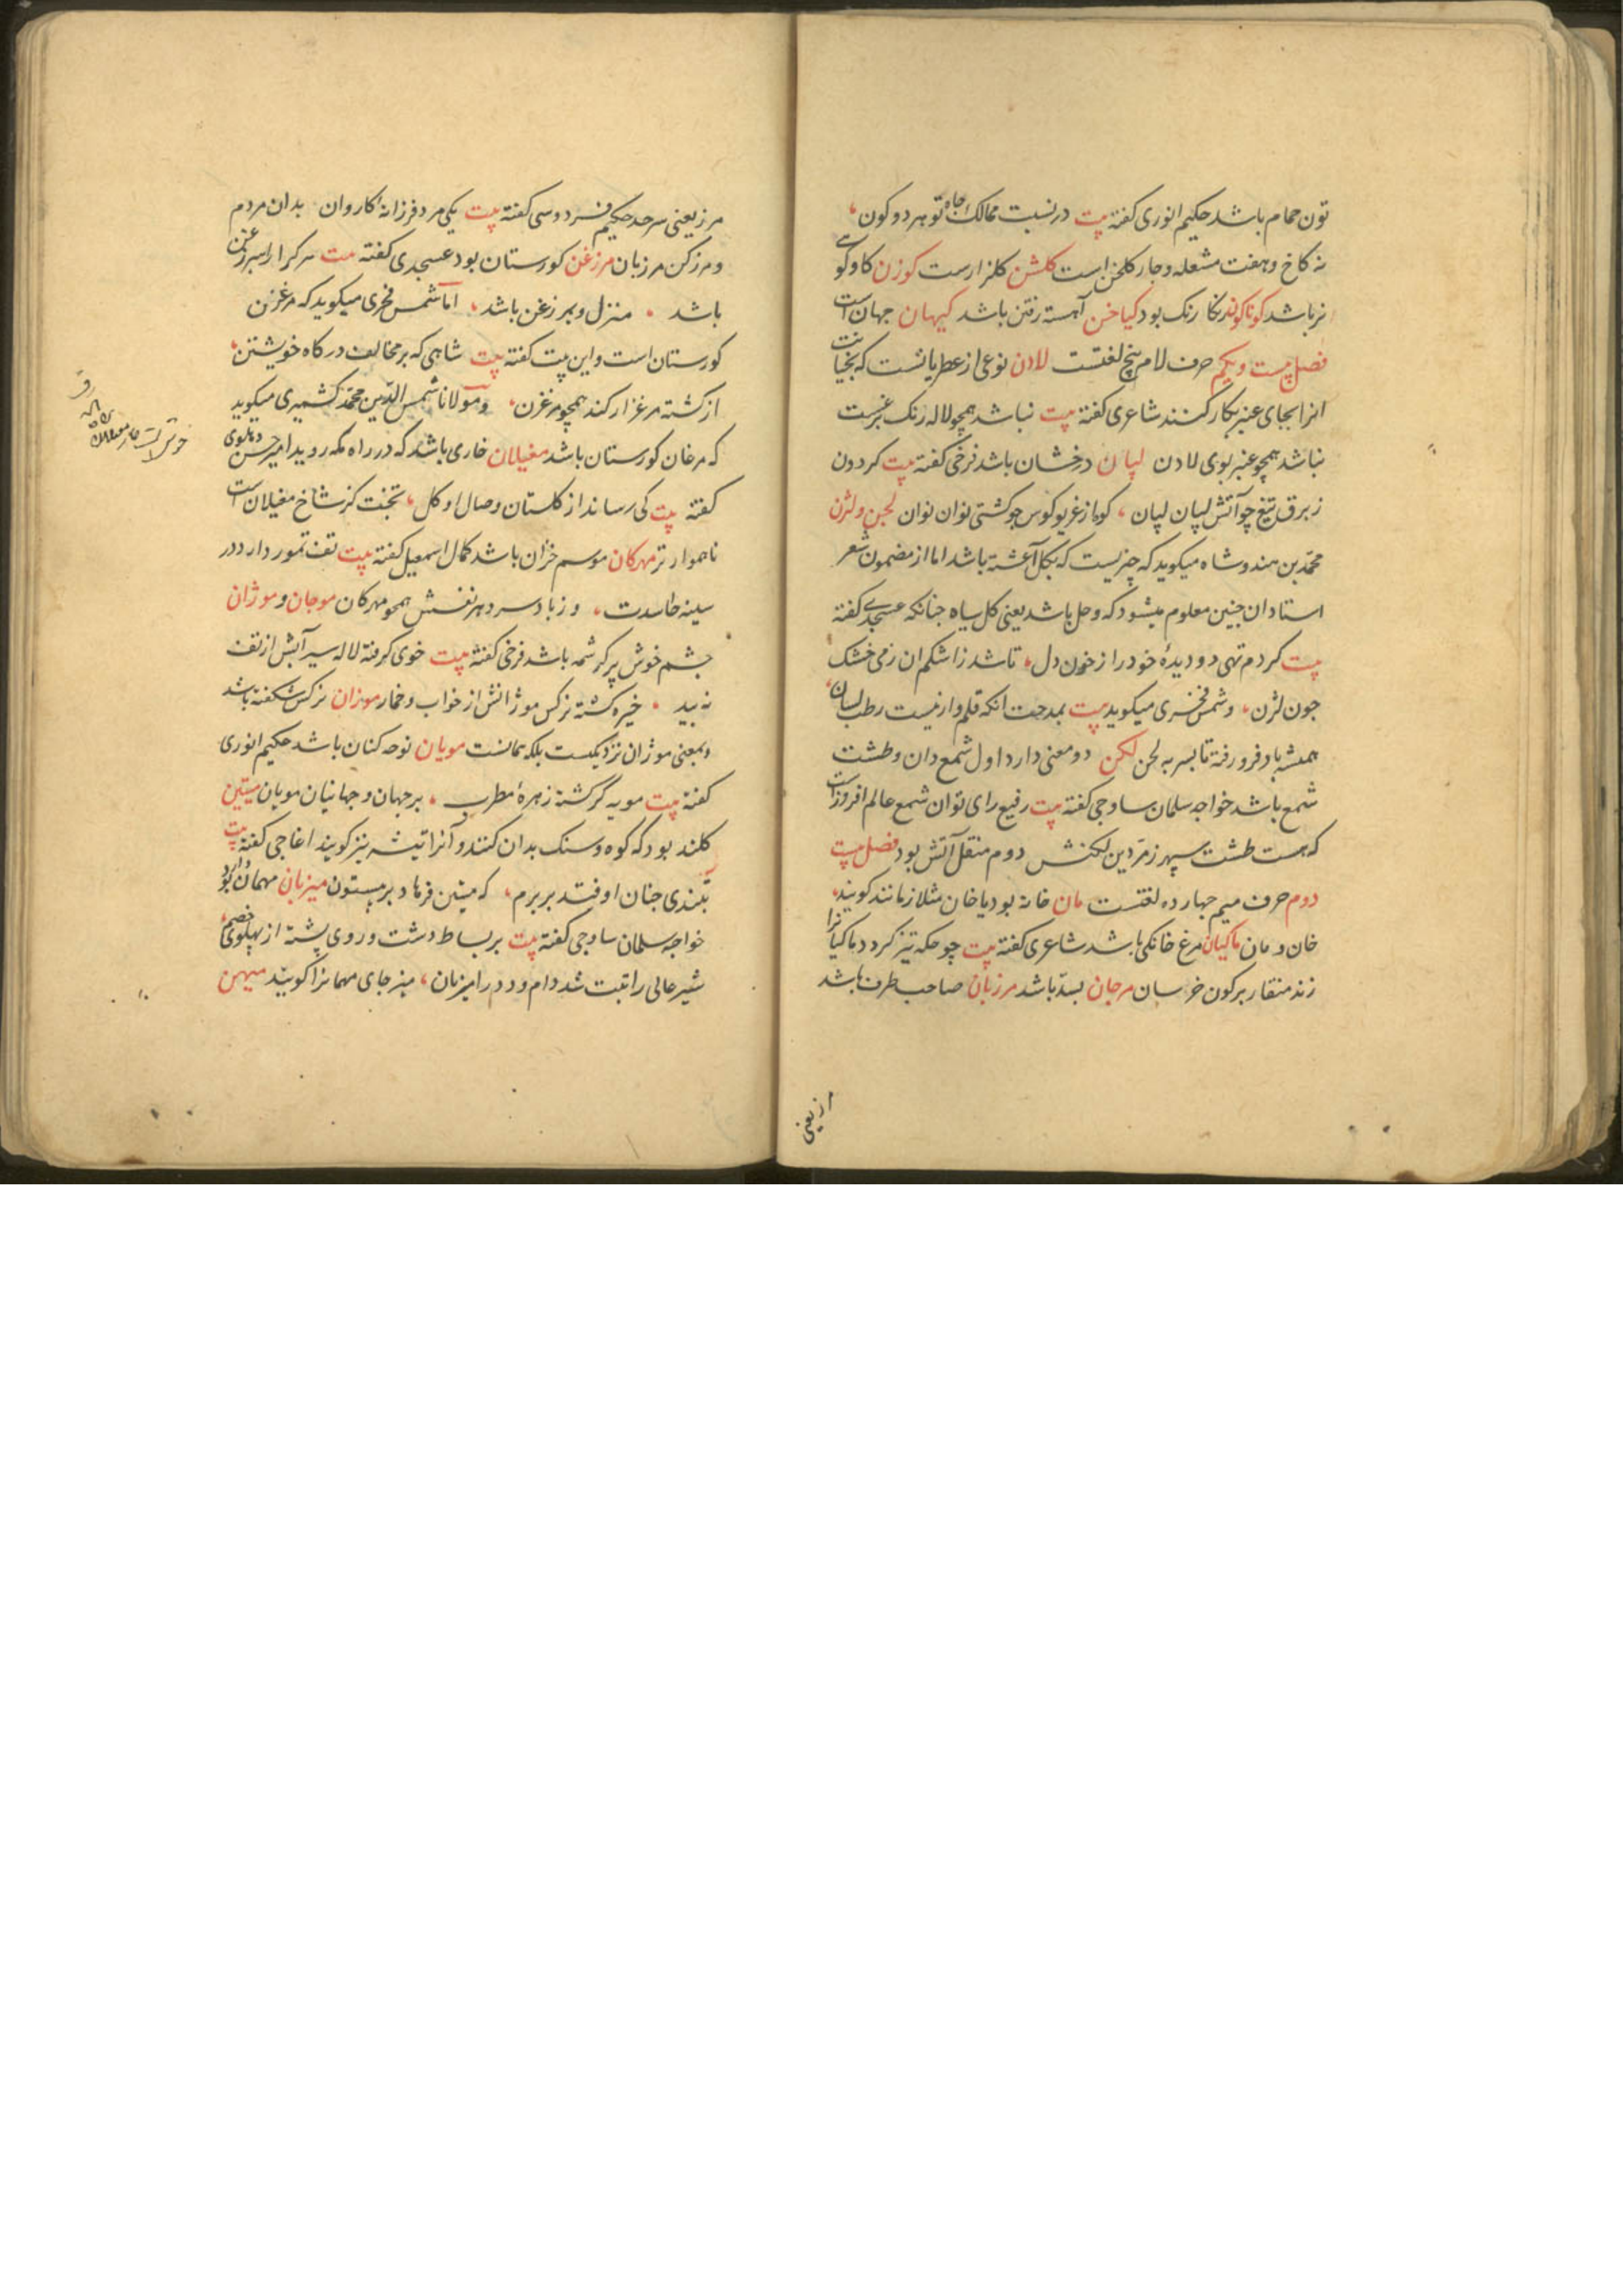 تون حمام باشد حکیم انوری کفته بیت در نسبت ممالک جاه تو هر دو کون
نه کاخ و هفت مشعله و جار کلخن است کلشن کلزارست کوزن کاو کوهی
نر باشد کوناکون رنکا رنک بود کیاخن آهسته رفتن باشد کیهان جهان است
فصل بیست ویکم حرف لام پنج لغتست لادن نوعی از عطریاتست که
انرا بجای عنبر بکار کنند شاعری کفته بیت نباشد همچو لاله رنک
نباشد همچو عنبر بوی لادن لپان درخشان باشد فرخی کفته بیت کردون
زبرق تیغ چو آتش لپان لپان کوه از غریو کوس جو کشتی نوان نوان لجن و لژن
محمد بن هندوشاه میکوید که چیزیست که بکل آغشته باشد اما از مضمون شعر
استادان جنین معلوم میشود که وحل باشد یعنی کل سیاه جنانکه عسجدی کفته
بیت کردم تهی دو دیدهٔ خود را از خون دل تا شد ز اشکم ان زمی خشک
جون لژن وشمس فخری میکوید بیت بمدحت انکه قلم وار نیست رطب لسان
همیشه باد فرو رفته تا بسر به لجن لکن دو معنی دارد اول شمع دان و طشت
شمع باشد خواجه سلمان ساوجی کفته بیت رفیع رای توان شمع عالم افروز است
که هست طشت سپهر زمردین لکنش دوم منقل آتش بود فصل بیست
دوم حرف میم جهارده لغتست مان خانه بود یا خان مثلا زمانند کویند
خان و مان ماکیان مرغ خانکی باشد شاعری کفته بیت چو حکه تیز کردد ماکیانرا
زند منقار بر کون خروسان مرجان بسد باشد مرزبان صاحب طرف باشد
مرز یعنی
مرز یعنی سرحد حکیم فردوسی کفته بیت یکی مرد فرزانهٔ کاروان بدان مردم
ومرز کن مرزبان مرزغن کورستان بود عسجدی کفته بیت هر کرا راهبر زغن
باشد منزل و بمرزغن باشد اما شمس فخری میکوید که مرغزن
کورستان است و این بیت کفته بیت شاهی که بر مخالف درکاه خویشتن
از کشته مرغزار کند همچو مرغزن ومولانا شمس الدین محمد کشمیری میکوید
که مرغان کورستان باشد مغیلان خاری باشد که در راه مکه روید امیر حسن دهلوی
کفته بیت کی رساند از کلستان وصال او کل تخت کز شاخ مغیلان است
ناهموارتر مهرکان موسم خزان باشد کمال اسمعیل کفته بیت تف تموز دارد در
سینه حاسدت و ز باد سرد هر نفسش همچو مهرکان موجان و موژان
جشم خوش پر کرشمه باشد فرخی کفته بیت خوی کرفته لاله سیرآبش از تف
نبید خیره کشته نرکس موژانش از خواب و خمار موژان نرکس شکفته باشد
وبمعنی موژان نزدیکست بلکه همانست مویان نوحه کنان باشد حکیم انوری
کفته بیت مویه کر کشته زهرهٔ مطرب بر جهان و جهانیان مویان میتین
کلند بود که کوه و سنک بدان کنند و آنرا تیشه نیز کویند اغاجی کفته بیت
بتندی جنان اوفتد بر برم که میتین فرهاد بر بیستون میزبان مهماندار بود
خواجه سلمان ساوجی کفته بیت بر بساط دشت و روی پشته از پهلوی خصم
شیر عالی راتبت شد دام و دد را میزبان میز جای مهمانرا کویند میهن